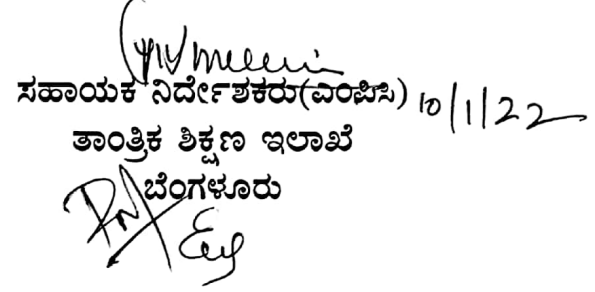 ಸಹಾಯಕ ನಿರ್ದೇಶಕರು(ಎಂಪಿಸಿ) 10/1/22
ತಾಂತ್ರಿಕ ಶಿಕ್ಷಣ ಇಲಾಖೆ
ಬೆಂಗಳೂರು